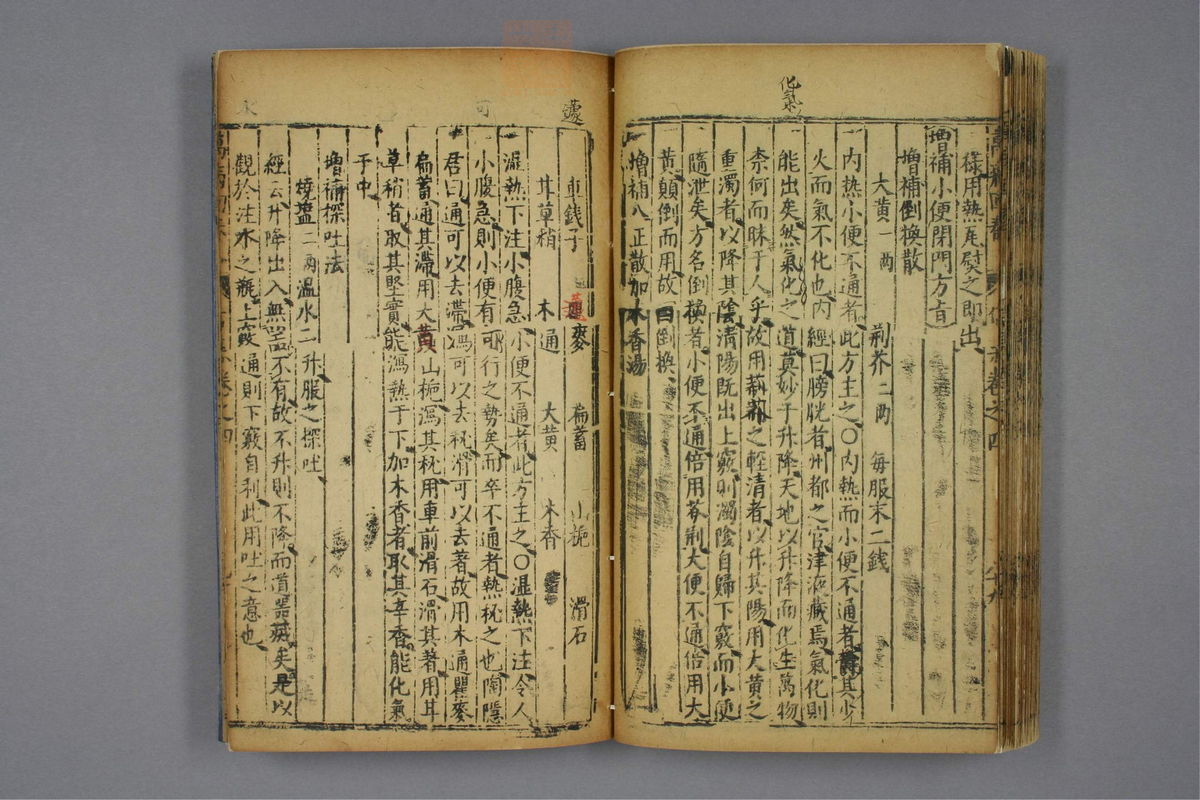 化氣
樣用熱瓦熨之即出
增補小便閉門方旨
增補倒換散
大黃一兩 荆芥二兩 每服末二錢
內熱小便不通者此方主之〇內熱而小便不通者其少
火而氣不化也內經曰膀胱者州都之官津液藏焉氣化則
能出矣然氣化之道莫妙于升降天地以升降而化生萬物
柰何而昧于人乎故用荆芥之輕清者以升其陽用大黃之
重濁者以降其陰清陽既出上竅則濁陰自歸下竅而小便
隨泄矣方名倒換者小便不通倍用荆大便不通倍用大
黃顛倒而用故曰倒換
增補八正散加木香湯
蘧
車錢子 蘧麥 扁蓄 山梔 滑石
甘草稍 木通 大黃 木香
濕熱下注小腹急小便不通者此方主之〇濕熱下注令人
小腹急則小便有可行之勢矣而卒不通者熱秘之也陶隱
君曰通可以去滯瀉可以去秘滑可以去著故用木通瞿麥
扁蓄通其滯用大黃山梔瀉其秘用車前滑石滑其著用甘
草稍者取其堅實能瀉熱于下加木香者取其辛香能化氣
于中
增補探吐法
燒鹽二兩溫水二升服之探吐
經云升降出入無器不有故不升則不降而道器病矣是以
觀於注水之瓶上竅通則下竅自利此用吐之意也
卷之四